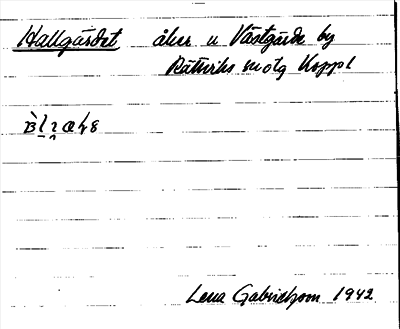 Hallgärdet åker u Västgärde by
Rättviks sn o tg Koppl
Lena Gabrielsson 1942